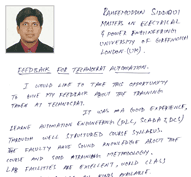 RAHEEMUDDIN SIDDIQUI
MASTERS IN ELECTRICAL
& POWER ENGINEERING
UNIVERSITY OF GREENWICH
LONDON (UK).
FEEDBACK FOR TECHNOCRAT AUTOMATION.
I WOULD LIKE TO TAKE THIS OPPORTUNITY
TO GIVE MY FEEDBACK ABOUT THE TRAINING
TAKEN AT TECHNOCRAT.
IT WAS A GOOD EXPERIENCE,
LEARNT AUTOMATION ENGINEERING (PLC, SCADA & DCS)
THROUGH WELL STRUCTURED COURSE SYLLABUS.
THE FACULTY HAVE SOUND KNOWLEDGE ABOUT THE
COURSE AND GOOD METHODOLOGY.
LAB FACILITIES ARE EXCELLENT, WORLD CLASS
KINDS AVAILABLE.